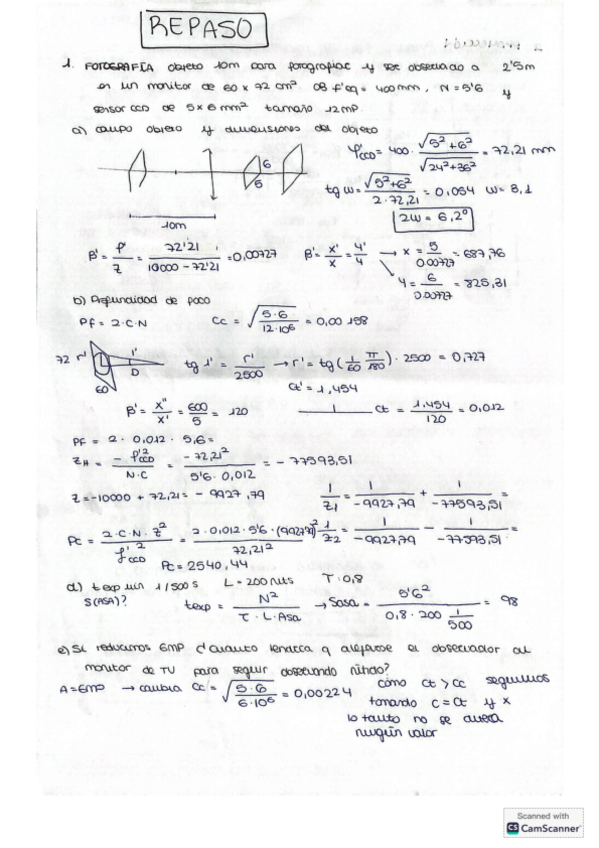 REPASO
1. FOTOGRAFÍA objeto 10m para fotografiar y ser observado a 2'5m
en un monitor de 60 x 72 cm² OB f'eq = 400mm, N = 5'6 y
sensor CCD de 5x6 mm² tamaño 12MP
a) campo objeto y dimensiones del objeto
f'CCD = 400 · √(5²+6²) / √(24²+36²) = 72,21 mm
6
5
10m
tg w = √(5²+6²) / (2·72,21) = 0,054 w = 3,1
2w = 6,2°
β' = f'/z = 72'21 / (10000 - 72'21) = 0,00727
β' = x'/x = y'/y → x = 5/0.00727 = 687,76
y = 6/0.00727 = 825,31
b) Profundidad de foco
PF = 2·C·N
Cc = √(5·6 / 12·10⁶) = 0,00158
72 r' 1' D 60
tg 1' = r'/2500 → r' = tg(1/60 π/180) · 2500 = 0,727
Ct' = 1,454
β' = x''/x' = 600/5 = 120
Ct = 1.454/120 = 0,012
PF = 2 · 0,012 · 5,6 =
ZH = -f'²CCD / N·C = -72,21² / (5'6 · 0,012) = -77593,51
Z = -10000 + 72,21 = -9927,79
1/Z1 = 1/-9927,79 + 1/-77593,51 =
Pc = 2·C·N·Z² / f'²CCD = 2·0,012·5'6·(9927'79)² / 72,21²
1/Z2 = 1/-9927,79 - 1/-77593,51 =
Pc = 2540,44
d) t exp min 1/500 s L = 200 nits T: 0,8
S(ASA)?
texp = N² / (T · L · Asa) → Sasa = 5'6² / (0,8 · 200 1/500) = 98
e) Si reducimos 6MP d'cuanto tendría q alejarse el observador al
monitor de TV para seguir observando nítido?
A = 6MP → cambia Cc = √(5·6 / 6·10⁶) = 0,00224
como Ct > Cc seguimos
tomando C = Ct y x
lo tanto no se
ningún valor
Scanned with
CS CamScanner